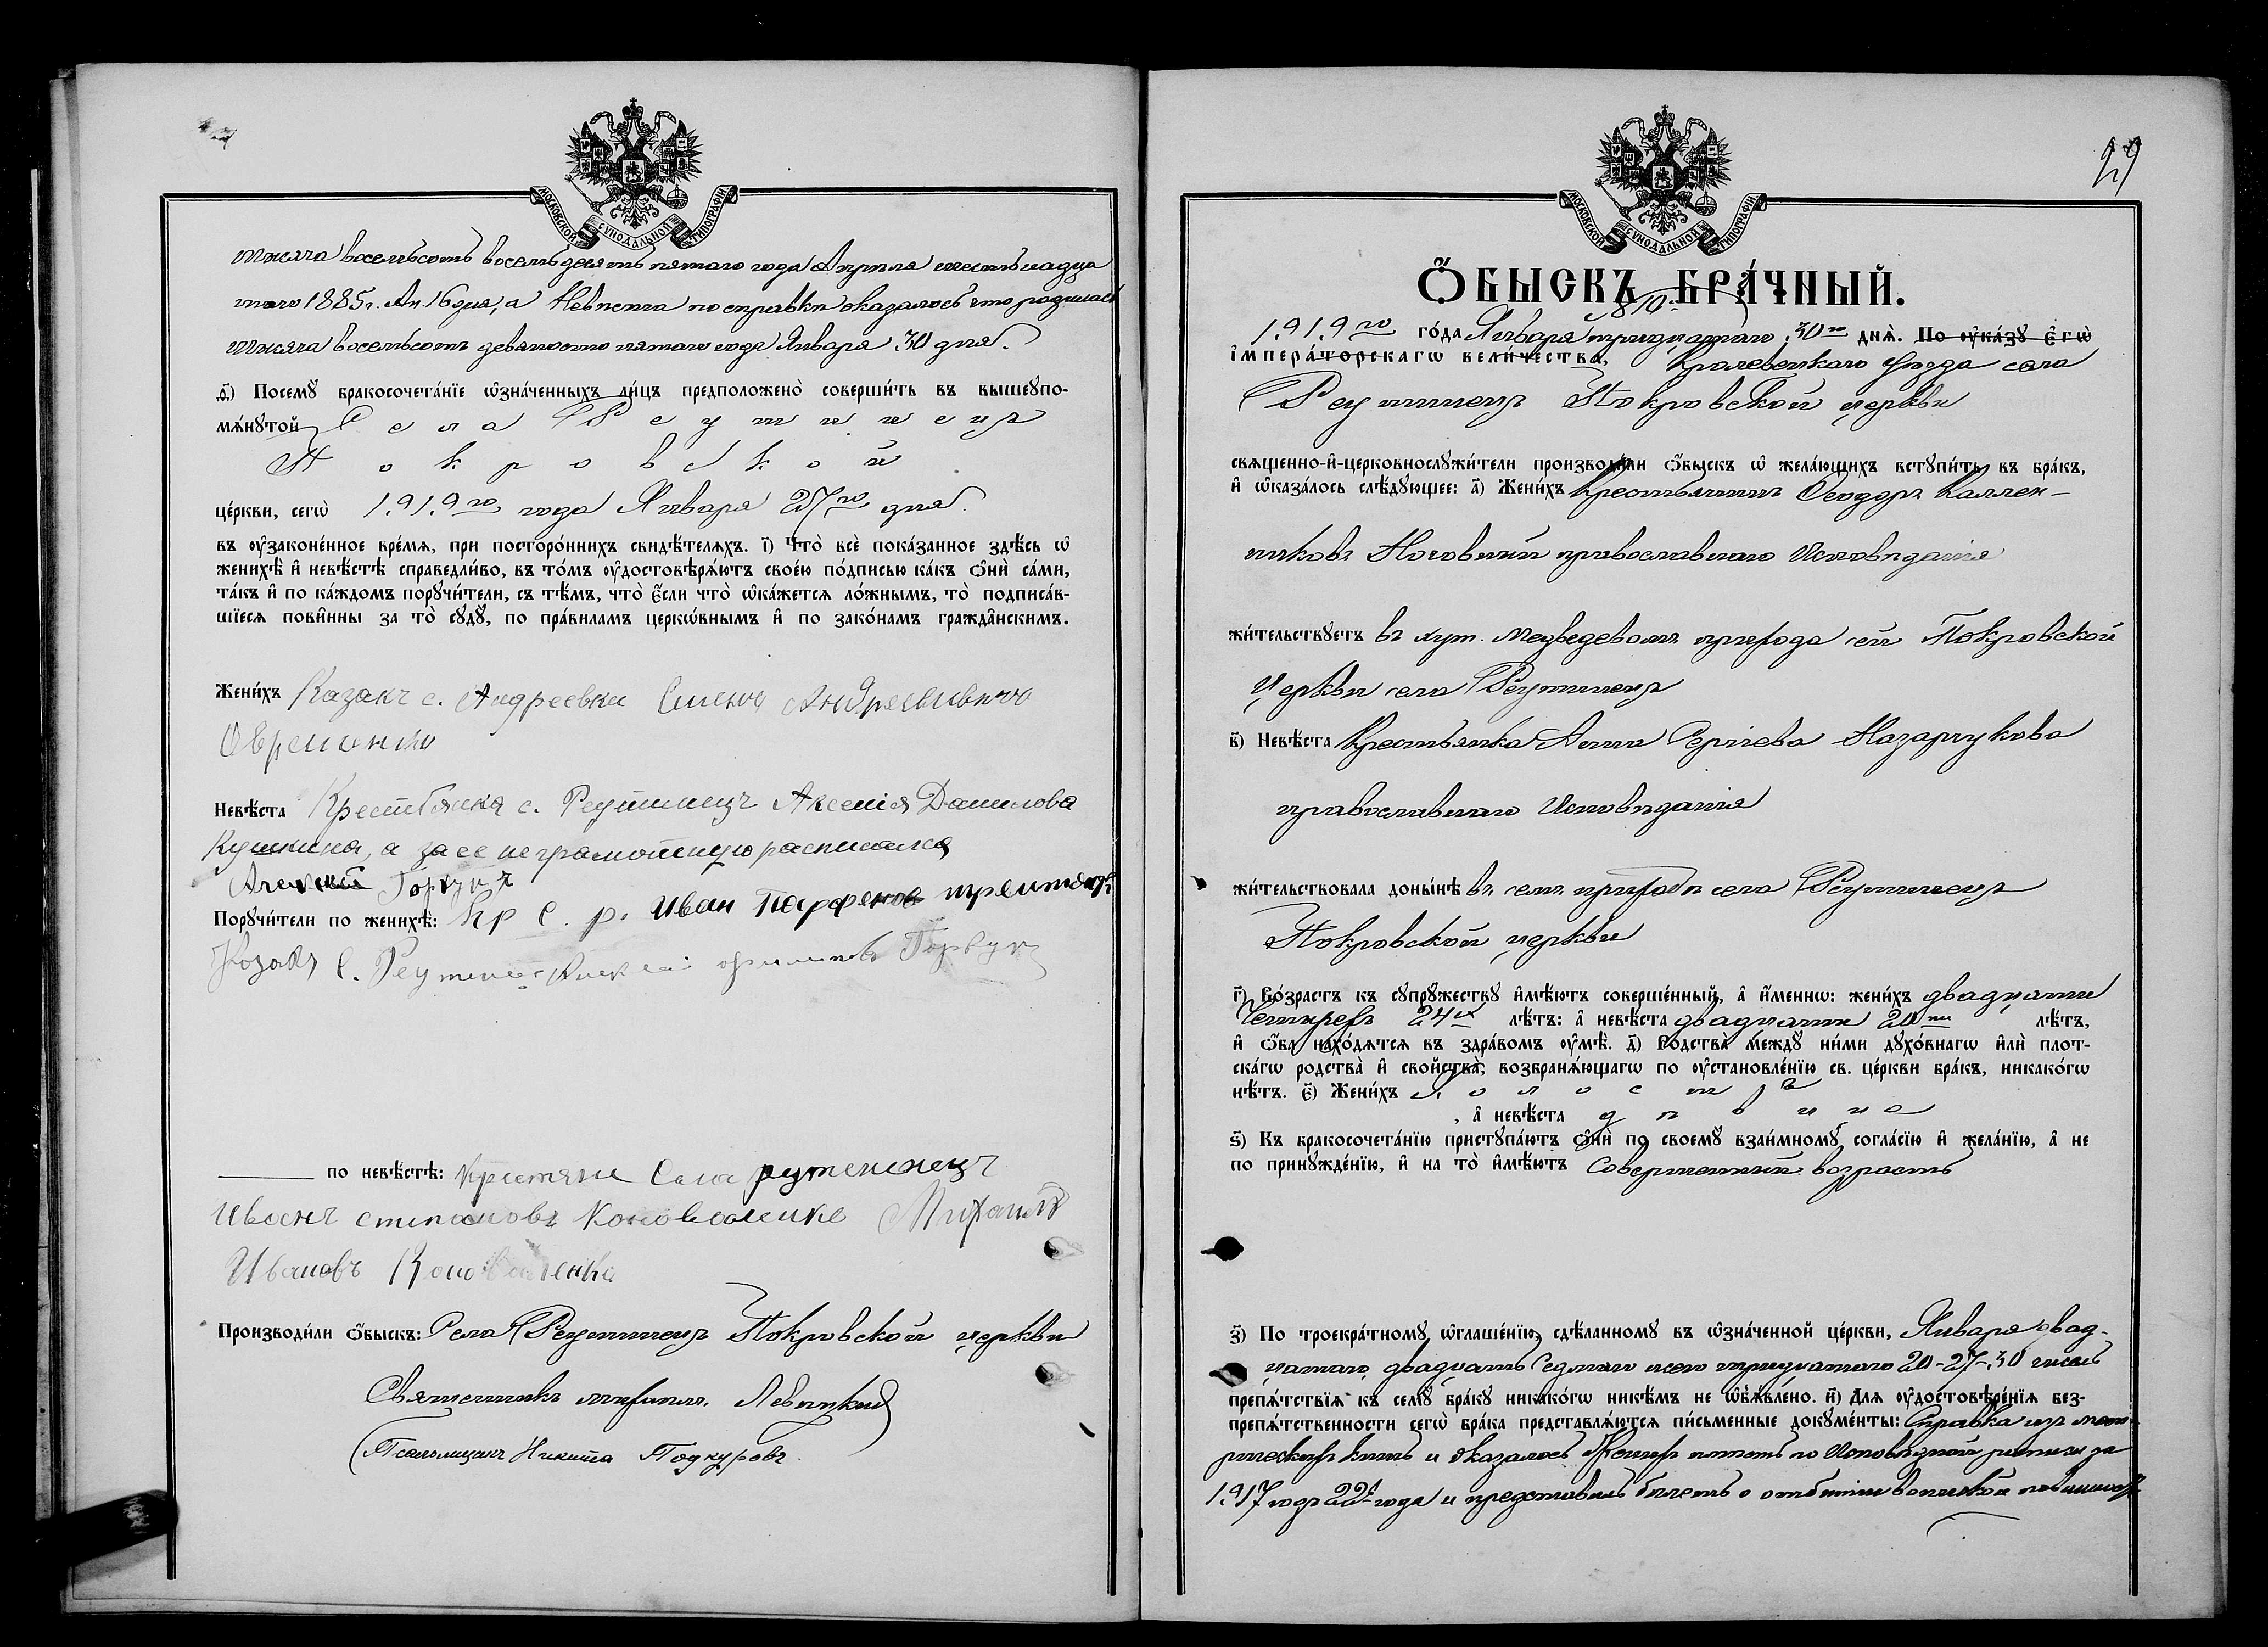 МОСКОВСКОЙ СѴНОДАЛЬНОЙ ТИПОГРАФІИ
тысяча восемьсотъ восемьдесятъ пятаго года Апрѣля шестьнадца
таго 1885 г. Ап. 16 дня, а Невѣста по справкѣ оказалось что родилась
тысяча восемьсотъ девяносто пятаго года Января 30 дня.
ѳ҃) Посемꙋ бракосочета́нїе ѡ҆зна́ченныхъ ли́цъ предположено̀ соверши́ть въ вышеꙋпо-
мѧ́нꙋтой Села Реутинецъ
Покровской
це́ркви, сегѡ̀ 1919го года Января 27го дня.
въ ᲂу҆законе́нное вре́мѧ, при посторо́ннихъ свидѣ́телѧхъ. і҃) Что̀ всѐ пока́занное здѣ́сь ѡ҆
женихѣ̀ и҆ невѣ́стѣ справедли́во, въ то́мъ ᲂу҆достовѣрѧ́ютъ свое́ю по́дписью ка́къ ѻ҆нѝ са́ми,
та́къ и҆ по ка́ждомъ порꙋчи́тели, съ тѣ́мъ, что̀ є҆́сли что̀ ѡ҆ка́жетсѧ ло́жнымъ, то̀ подписа́в-
шїесѧ пови́нны за то̀ сꙋдꙋ̀, по пра́виламъ церко́внымъ и҆ по зако́намъ гражда́нскимъ.
Жени́хъ Казакъ с. Андреевки Симонъ Андреевичъ
Овременко
Невѣ́ста Крестьянка с. Реутинецъ Аксенія Данилова
Кушкина, а за ее неграмотную расписался
Алексей Горкунъ
Порꙋчи́тели по женихѣ̀: Кр С. р. Иван Парфенов
Козакъ С. Реутинец Алексей Горкун
по невѣ́стѣ: Села
Иванъ Степановъ Коноваленко Михаилъ
Ивановъ Коноваленко
Производи́ли ѻ҆́быскъ: Села Реутинецъ Покровской церкви
Священникъ Левицкій
Псаломщикъ Никита Подкуровъ
29
МОСКОВСКОЙ СѴНОДАЛЬНОЙ ТИПОГРАФІИ
Ѻ҆́БЫСКЪ БРА́ЧНЫЙ.
1919го го́да Января тридцатаго 30го днѧ̀. По ᲂу҆ка́зꙋ є҆гѡ̀
і҆мпера́торскагѡ вели́чества, Кролевецкаго уѣзда села
Реутинецъ Покровской церкви
свѧще́нно-и҆-церковнослꙋжи́тели производи́ли ѻ҆́быскъ ѡ҆ жела́ющихъ встꙋпи́ть въ бра́къ,
и҆ ѡ҆каза́лось слѣ́дꙋющее: а҃) Жени́хъ Крестьянинъ Ѳеодоръ Каллен-
никовъ православнаго Исповѣданія
жи́тельствꙋетъ въ хут. Медведевомъ прихода сей Покровской
Церкви села Реутинецъ
в҃) Невѣ́ста Крестьянка Анна Сергіева Назарчукова
православнаго Исповѣданія
жи́тельствовала доны́нѣ въ семъ приходѣ села Реутинецъ
Покровской церкви
г҃) Во́зрастъ къ сꙋпрꙋ́жествꙋ и҆мѣ́ютъ соверше́нный, а҆ и҆́меннѡ: жени́хъ двадцати
Четырехъ 24х лѣ́тъ: а҆ невѣ́ста двадцати 20ти лѣ́тъ,
и҆ ѻ҆́ба нахо́дѧтсѧ въ здра́вомъ ᲂу҆мѣ̀. д҃) Родства̀ междꙋ̀ ни́ми дꙋхо́внагѡ и҆лѝ плот-
ска́гѡ родства̀ и҆ свойства̀, возбранѧ́ющагѡ по ᲂу҆становле́нїю св. це́ркви бра́къ, никако́гѡ
нѣ́тъ. є҃) Жени́хъ холостъ
, а҆ невѣ́ста дѣвица
ѕ҃) Къ бракосочета́нїю пристꙋпа́ютъ ѻ҆нѝ по своемꙋ̀ взаи́мномꙋ согла́сїю и҆ жела́нїю, а҆ не
по принꙋжде́нїю, и҆ на то̀ и҆мѣ́ютъ Совершенный возрастъ
з҃) По троекра́тномꙋ ѡ҆глаше́нїю, сдѣ́ланномꙋ въ ѡ҆зна́ченной це́ркви, Января двад-
цатаго, двадцать Седмаго и тридцатаго 20-27-30 чиселъ
препѧ́тствїѧ къ семꙋ̀ бра́кꙋ никако́гѡ никѣ́мъ не ѡ҆б̾ѧвле́но. и҃) Длѧ ᲂу҆достовѣре́нїѧ без-
препѧ́тственности сегѡ̀ бра́ка представлѧ́ютсѧ пи́сьменные докꙋме́нты: Справка изъ мет-
рическихъ книгъ и оказалось Женихъ по Исповѣдной росписи за
1917 годъ 22х года и представилъ билетъ о отбытіи воинской повинности